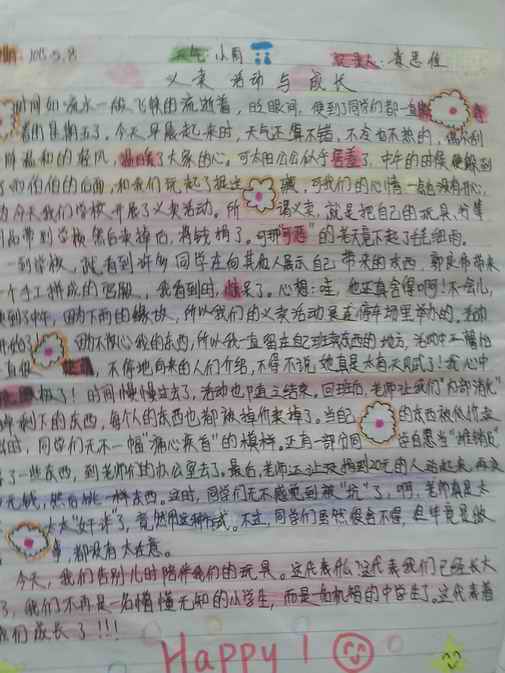 2015.5.8 天气:小雨 记录人:黄思佳
义卖活动与成长
时间如流水一般飞快的流逝着,眨眼间,便到了同学们都一直期
着的星期五了。今天早晨起来时,天气还算不错,不冷也不热的,偶尔刮
一阵温和的春风,温暖了大家的心。可太阳公公似乎害羞了,中午的时候便躲到
了和伯伯的后面,和我们玩起了捉迷藏,可我们的心情一点也没有担心,
为今天我们学校开展了义卖活动。所谓义卖,就是把自己的玩具、书等
用品带到学校然后卖掉后,将钱捐了。可那"可恶"的老天竟下起了毛毛细雨。
一到学校,就看到许多同学在向其他人展示自己带来的东西,郭良伟带来
一个手工拼成的,我看到时,惊呆了。心想:哇,他还真舍得啊!不一会儿,
来到了中午,因为下雨的缘故,所以我们的义卖活动是在停车场里举办的。活动
开始了!因为担心我的东西,所以我一直留在自己班卖东西的地方,活动中
一直很,不停地向来的人们介绍,不得不说她真是太有天赋了!我心中
极了!时间慢慢过去了,活动也随之结束。回班后,老师让我们"内部消化"
剩下的东西,每个人的东西也都被掉价卖掉了。当自己的东西被低价卖
时,同学们无不一幅"痛心疾首"的模样。还有一部分同学自愿当"推销员"
了一些东西,到老师们的办公室去了。最后,老师还让买捐到20元的人站起来,再次
元钱,然后挑一样东西。这时,同学们无不感觉到被"坑"了,啊,老师真是太
太太"奸诈"了,竟然用这种方式。不过,同学们虽然很舍不得,但毕竟是做
事,都没有太在意。
今天,我们告别儿时陪伴我们的玩具。这代表什么?这代表我们已经长大
了,我们不再是一名懵懂无知的小学生,而是一名机智的中学生了。这代表着
我们成长了!!!
Happy!